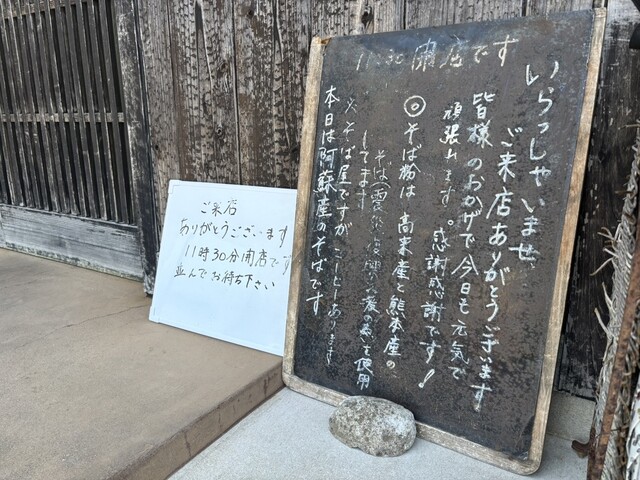 11:30 開店です
いらっしゃいませ
ご来店ありがとうございます
皆様のおかげで今日も元気で
頑張れます。感謝感謝です!
◎そば粉は高来産と熊本産の
そば(震災
を使用
してます
※そば屋ですがコーヒーあります
本日は阿蘇産のそばです
ご来店
ありがとうございます
11時30分開店です
並んでお待ち下さい